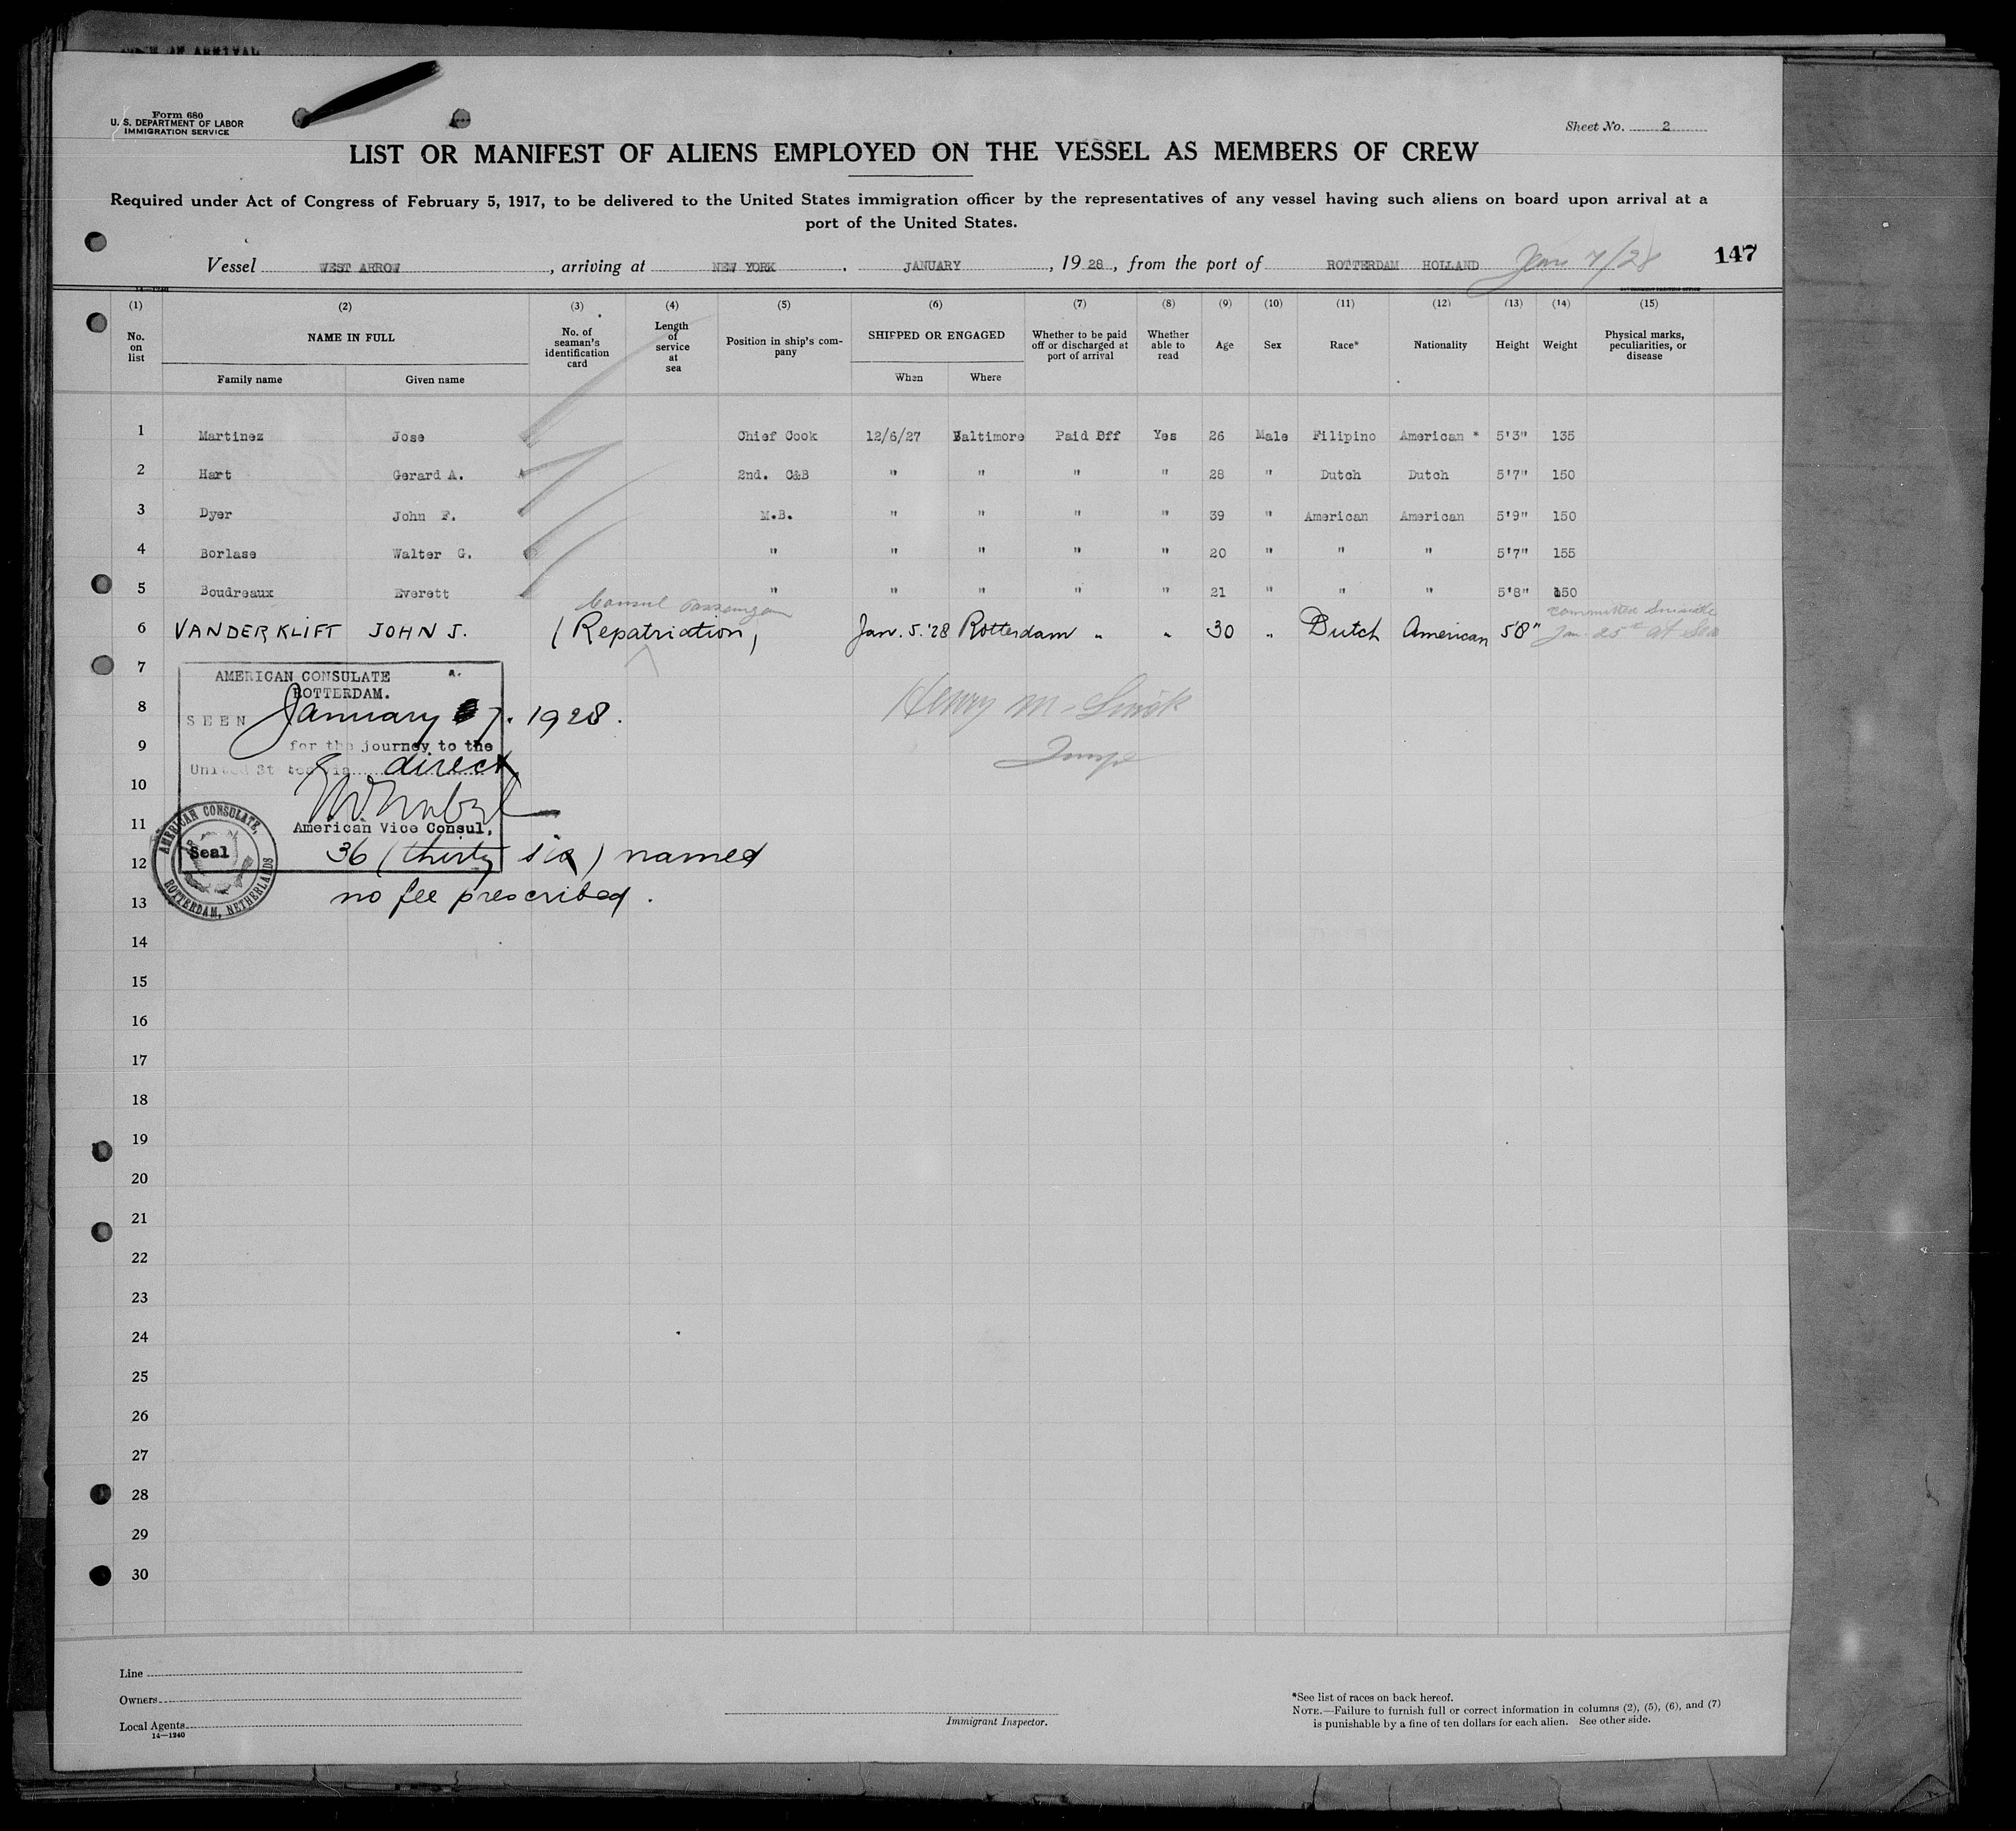 Form 680
U. S. DEPARTMENT OF LABOR
IMMIGRATION SERVICE
Sheet No. 2
LIST OR MANIFEST OF ALIENS EMPLOYED ON THE VESSEL AS MEMBERS OF CREW
Required under Act of Congress of February 5, 1917, to be delivered to the United States immigration officer by the representatives of any vessel having such aliens on board upon arrival at a
port of the United States.
Vessel WEST ARROW, arriving at NEW YORK, JANUARY, 1928, from the port of ROTTERDAM HOLLAND Jan 7/28 147
(1) (2) (3) (4) (5) (6) (7) (8) (9) (10) (11) (12) (13) (14) (15)
No. on list NAME IN FULL Family name Given name No. of seaman's identification card Length of service at sea Position in ship's company SHIPPED OR ENGAGED When Where Whether to be paid off or discharged at port of arrival Whether able to read Age Sex Race* Nationality Height Weight Physical marks, peculiarities, or disease
1 Martinez Jose Chief Cook 12/6/27 Baltimore Paid Off Yes 26 Male Filipino American * 5'3" 135
2 Hart Gerard A. 2nd. C&B " " " " 28 " Dutch Dutch 5'7" 150
3 Dyer John F. M.B. " " " " 39 " American American 5'9" 150
4 Borlase Walter G. " " " " " 20 " " " 5'7" 155
5 Boudreaux Everett " " " " " 21 " " " 5'8" 150
Consul passenger
6 VANDERKLIFT JOHN J. (Repatriation) Jan. 5.'28 Rotterdam " " 30 " Dutch American 5'8"
Jan 25th at Sea
7
AMERICAN CONSULATE
ROTTERDAM.
8
SEEN January 7. 1928.
9
for the journey to the
United States via direct
10
11
American Vice Consul,
12
Seal
AMERICAN CONSULATE, ROTTERDAM, NETHERLANDS
36 (thirty six) named
13
no fee prescribed.
14
15
16
17
18
19
20
21
22
23
24
25
26
27
28
29
30
Line
Owners
Local Agents
14—1240
Immigrant Inspector.
*See list of races on back hereof.
NOTE.—Failure to furnish full or correct information in columns (2), (5), (6), and (7)
is punishable by a fine of ten dollars for each alien. See other side.